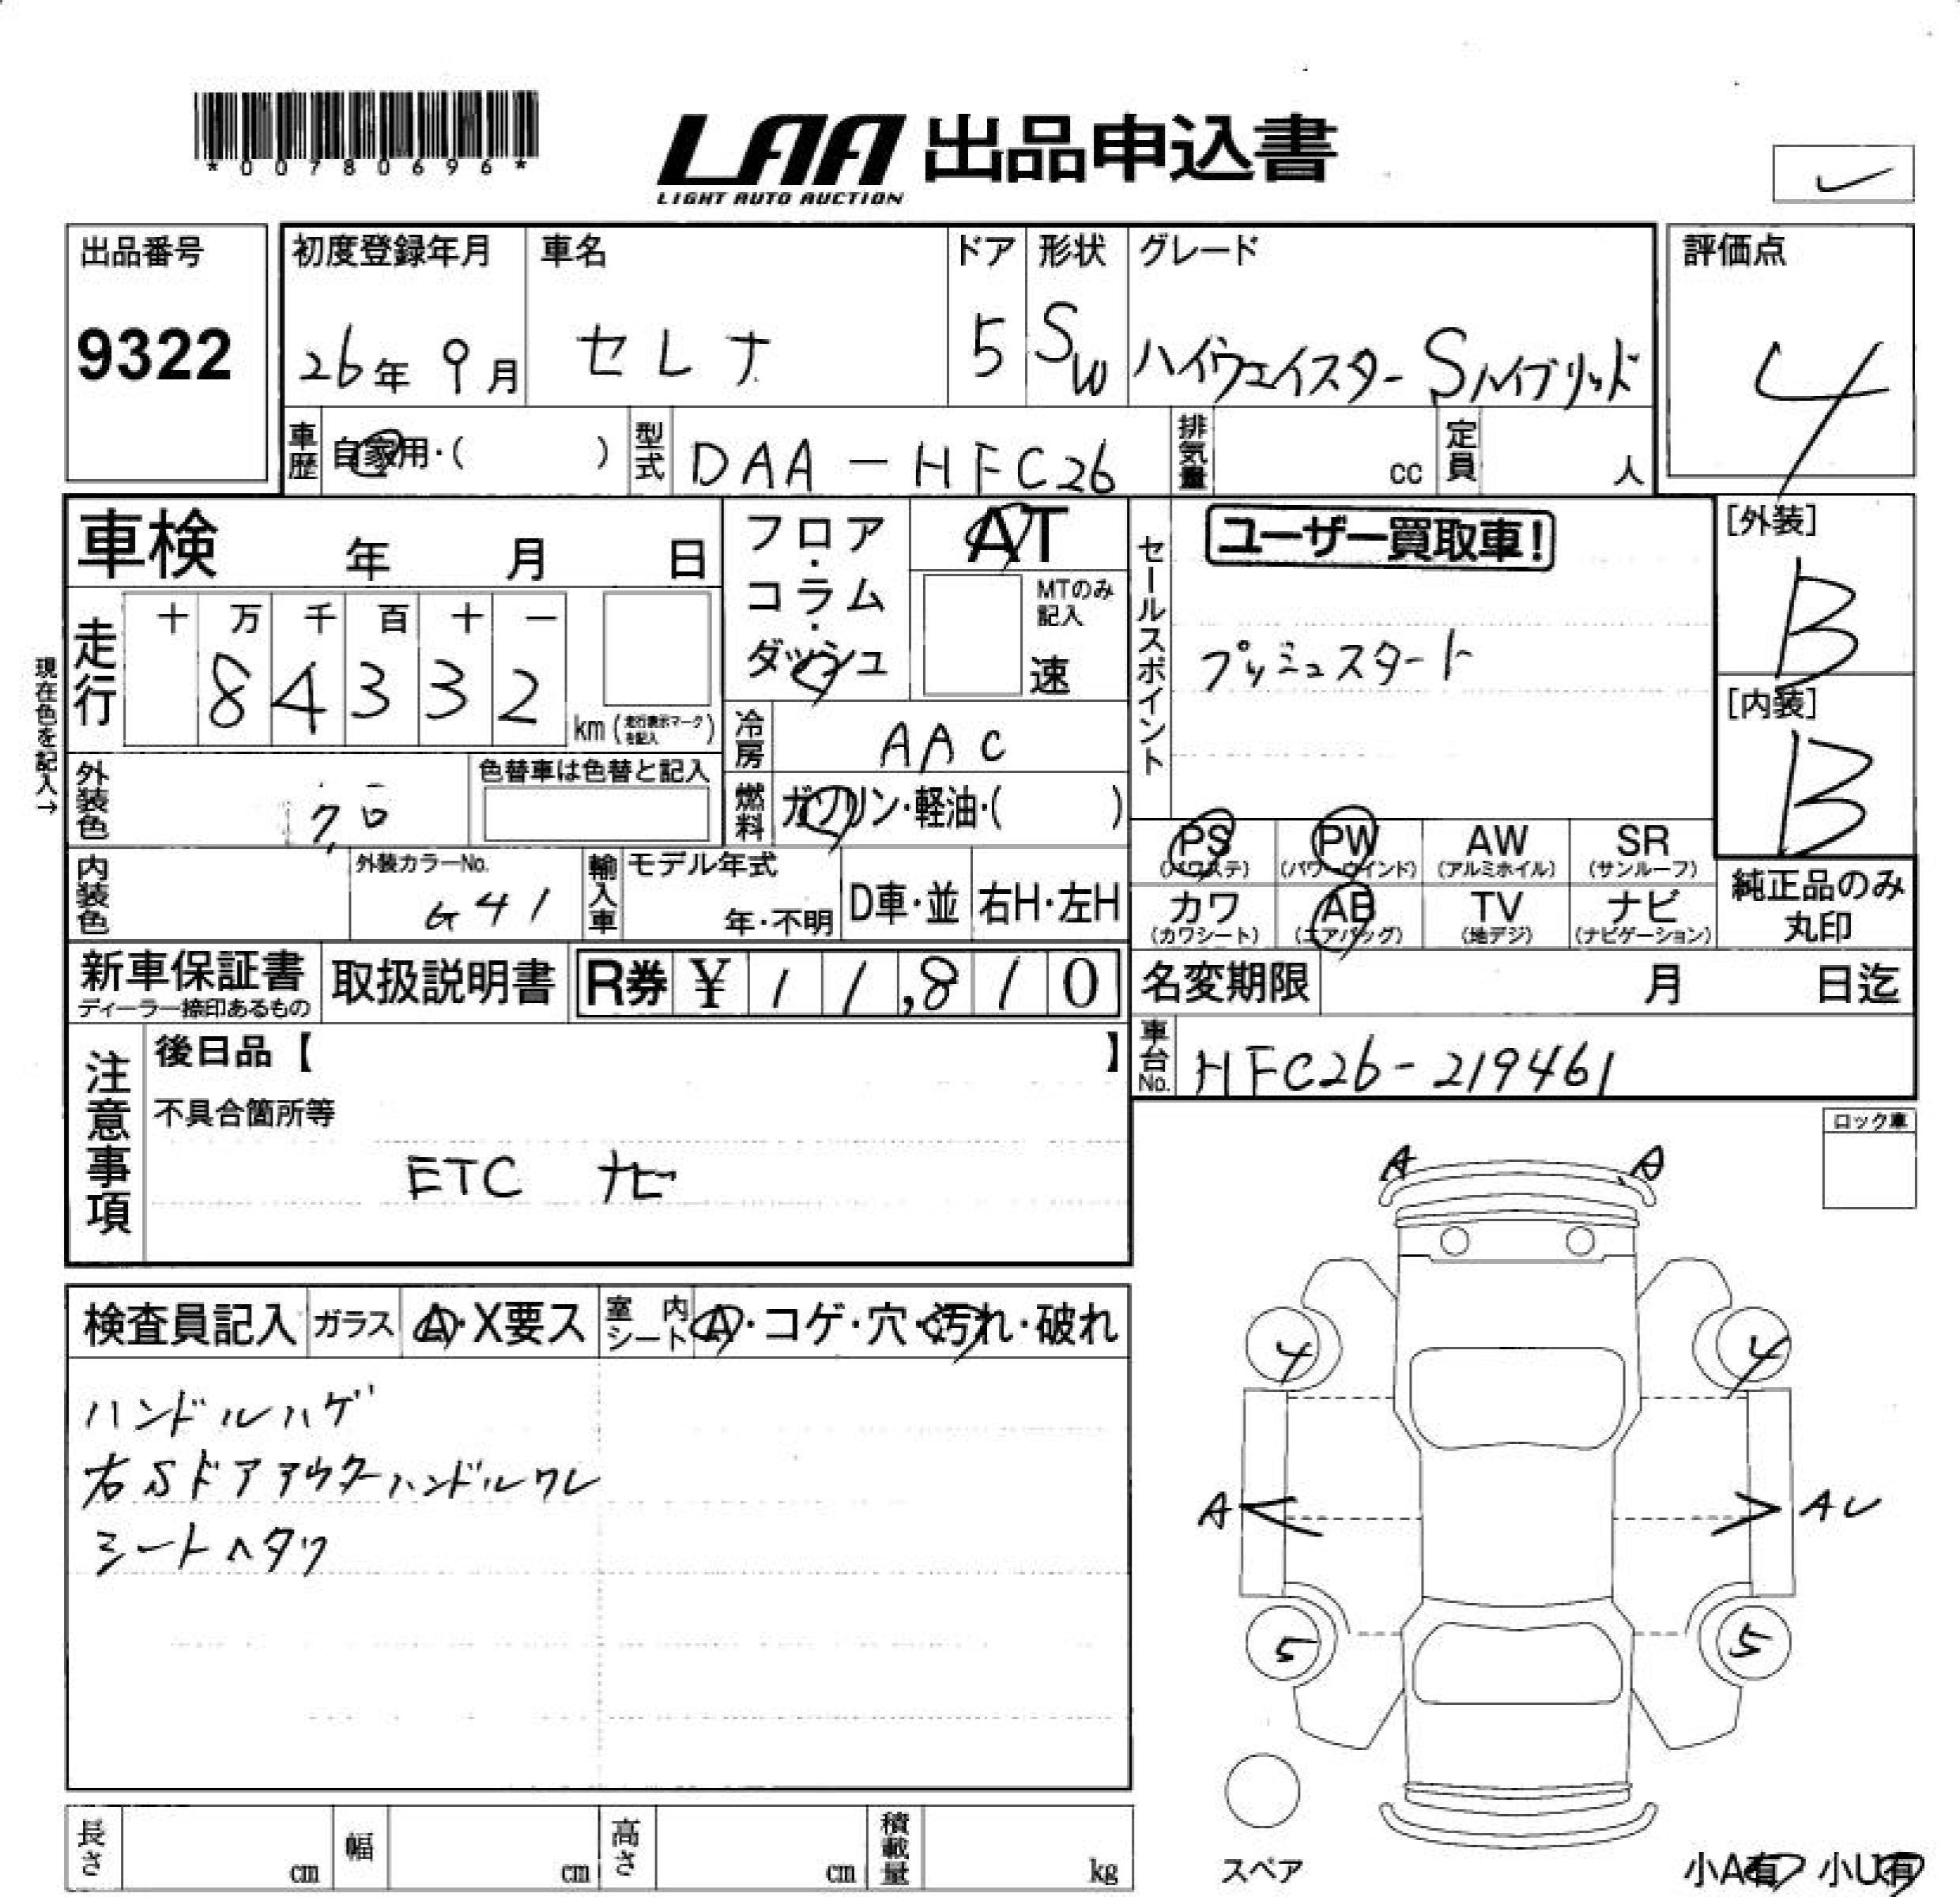 *00780696*
LAA 出品申込書
LIGHT AUTO AUCTION
出品番号
9322
初度登録年月 車名 ドア 形状 グレード
26年 9月 セレナ 5 SW ハイウェイスター Sハイブリッド
評価点
4
車歴 自家用・( ) 型式 DAA-HFC26 排気量 cc 定員 人
車検 年 月 日
フロア・コラム・ダッシュ
AT
MTのみ記入
速
現在色を記入→
走行 十 万 千 百 十 一
84332 km (走行表示マークを記入)
冷房 AAC
燃料 ガソリン・軽油・( )
セールスポイント
ユーザー買取車!
プッシュスタート
[外装]
B
[内装]
B
外装色 クロ 色替車は色替と記入
内装色 外装カラーNo. G41
輸入車 モデル年式 年・不明 D車・並 右H・左H
PS (パワステ) PW (パワーウインド) AW (アルミホイル) SR (サンルーフ)
カワ (カワシート) AB (エアバッグ) TV (地デジ) ナビ (ナビゲーション)
純正品のみ丸印
新車保証書 ディーラー捺印あるもの 取扱説明書 R券 ¥ 11,810
名変期限 月 日迄
車台No. HFC26-219461
注意事項
後日品【 】
不具合箇所等
ETC ナビ
ロック車
検査員記入 ガラス A・X要ス 室内シート A・コゲ・穴・汚れ・破れ
ハンドルハゲ
右Sドアアウターハンドルワレ
シートヘタリ
A A
4 4
A AU
5 5
スペア
小A有 小U有
長さ cm 幅 cm 高さ cm 積載量 kg